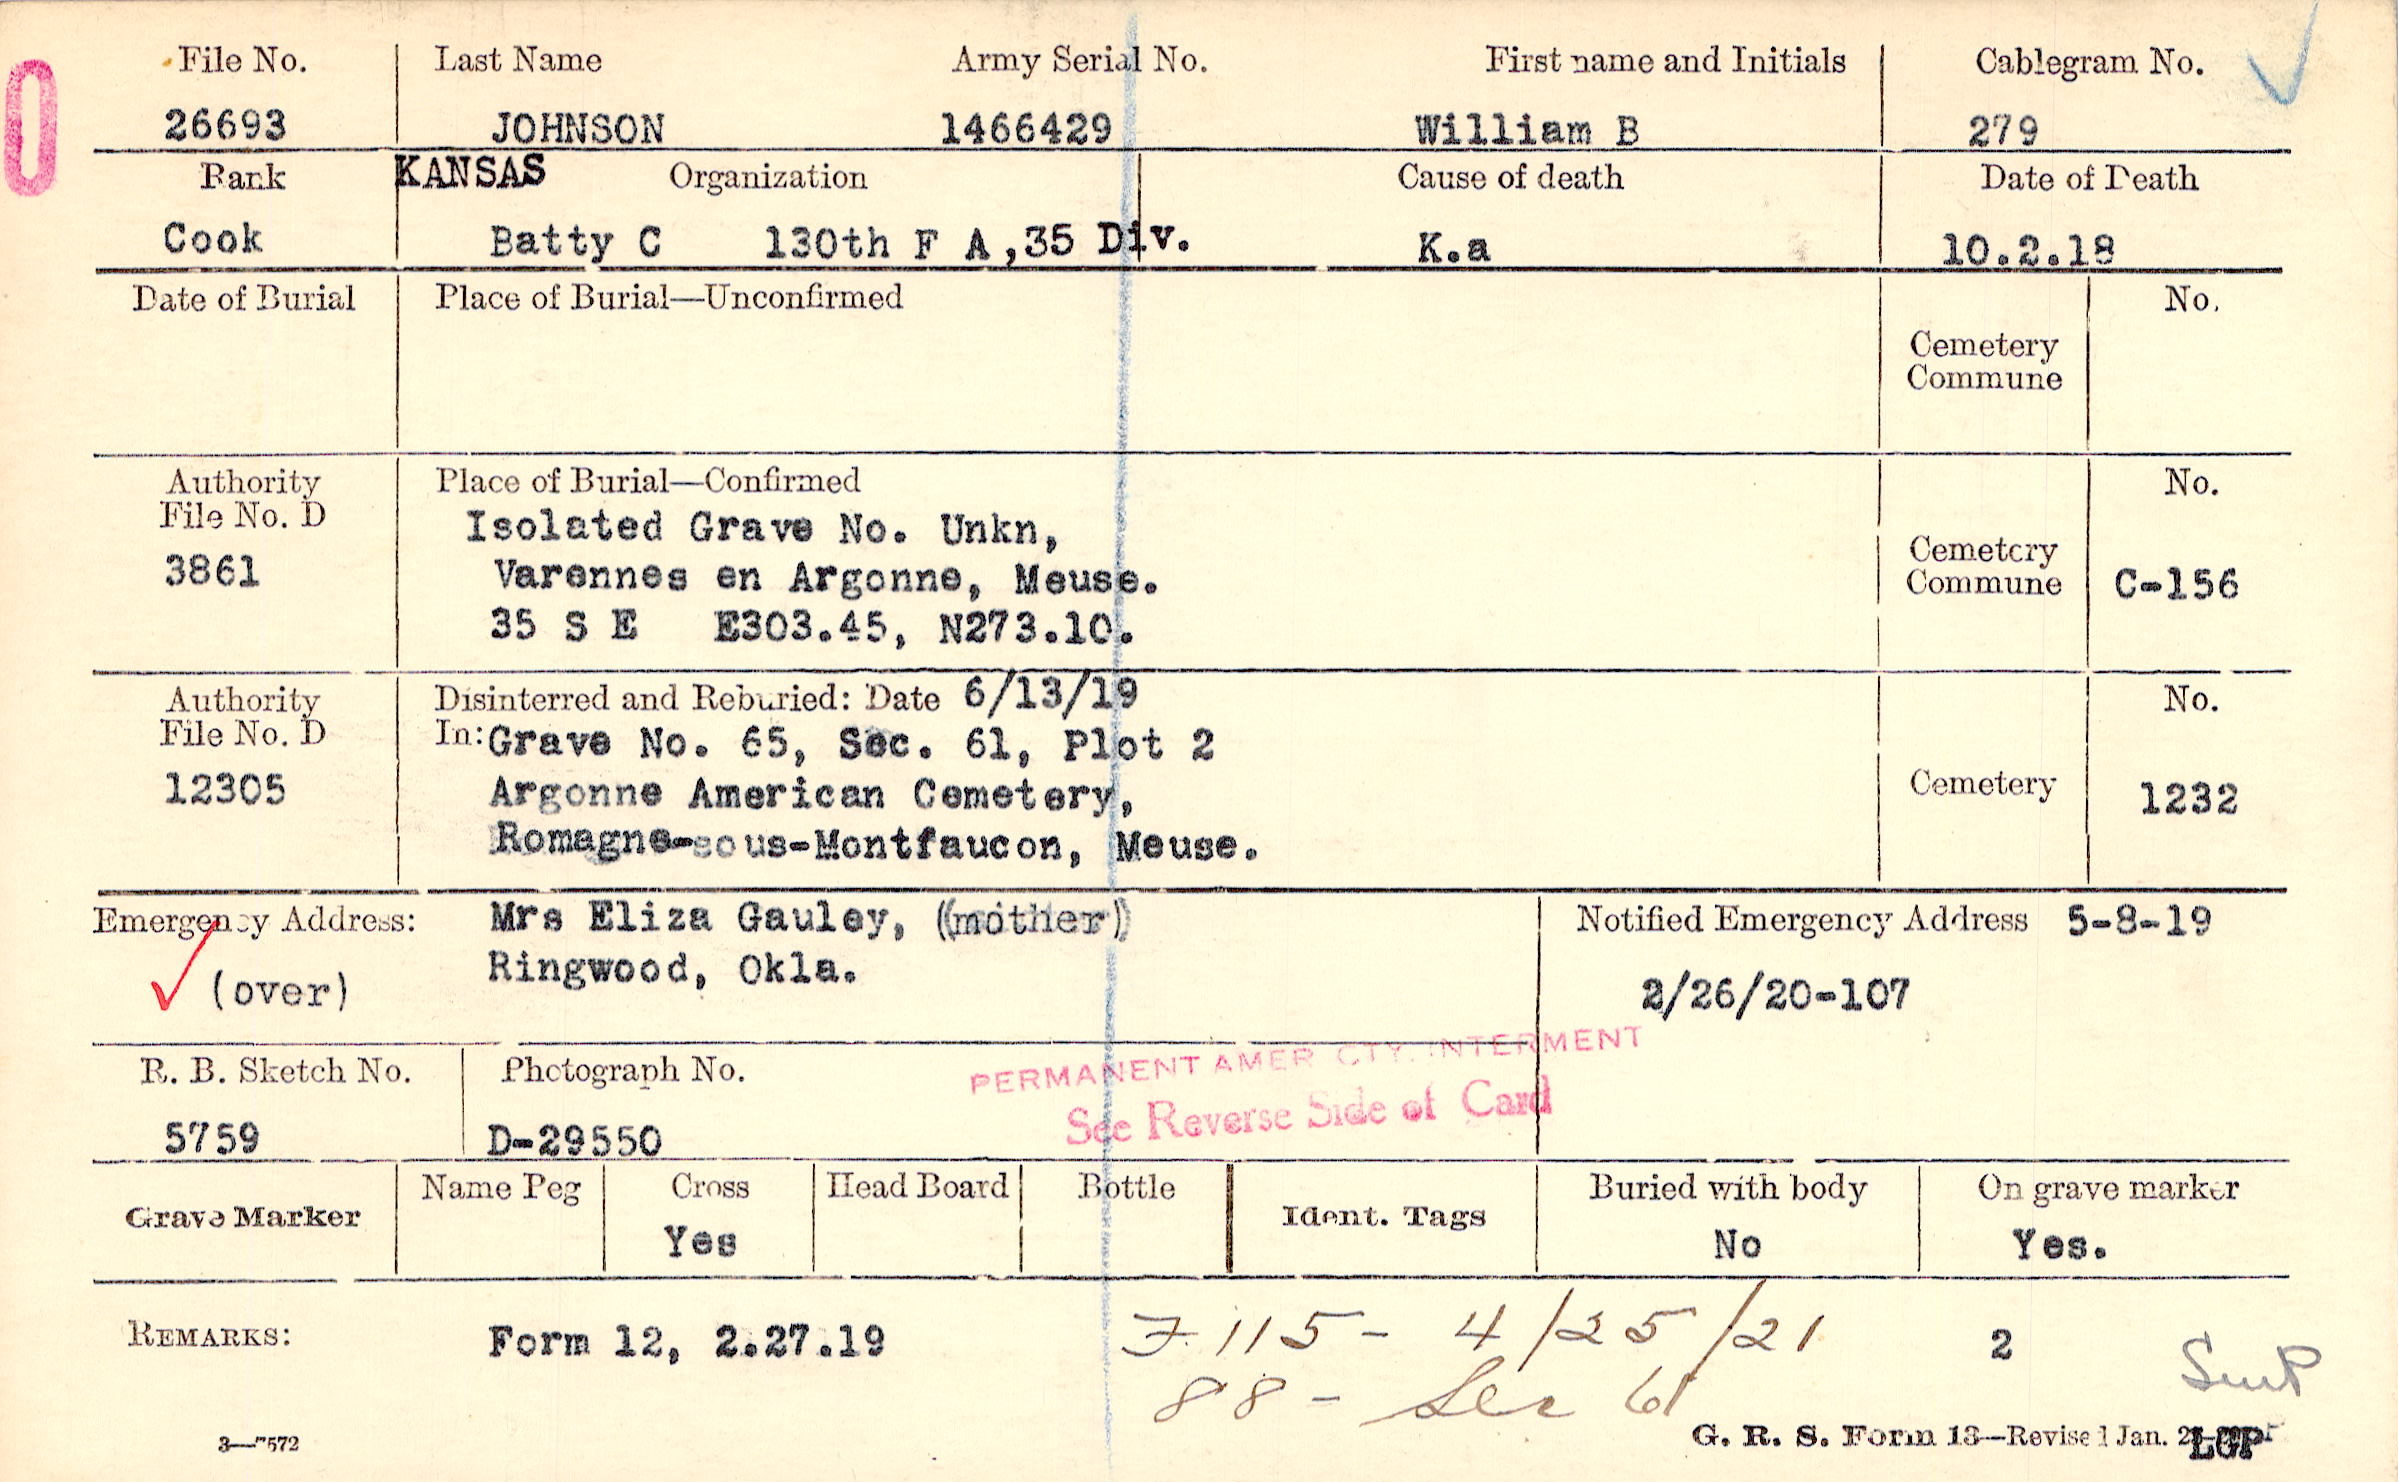 File No. Last Name Army Serial No. First name and Initials Cablegram No.
26693 JOHNSON 1466429 William B 279
Rank KANSAS Organization Cause of death Date of Death
Cook Batty C 130th F A,35 Div. K.a 10.2.18
Date of Burial Place of Burial—Unconfirmed No.
Cemetery
Commune
Authority Place of Burial—Confirmed No.
File No. D Isolated Grave No. Unkn,
3861 Varennes en Argonne, Meuse. Cemetery
Commune C-156
35 S E E303.45, N273.10.
Authority Disinterred and Reburied: Date 6/13/19 No.
File No. D In: Grave No. 65, Sec. 61, Plot 2
12305 Argonne American Cemetery, Cemetery 1232
Romagne-sous-Montfaucon, Meuse.
Emergency Address: Mrs Eliza Gauley, (mother) Notified Emergency Address 5-8-19
(over) Ringwood, Okla. 2/26/20-107
R. B. Sketch No. Photograph No. PERMANENT AMER CTY. INTERMENT
See Reverse Side of Card
5759 D-29550
Grave Marker Name Peg Cross Head Board Bottle Ident. Tags Buried with body On grave marker
Yes No Yes.
REMARKS: Form 12, 2.27.19 F 115- 4/25/21 2
88 - Sec 61
3—7572 G. R. S. Form 13—Revised Jan. LGP